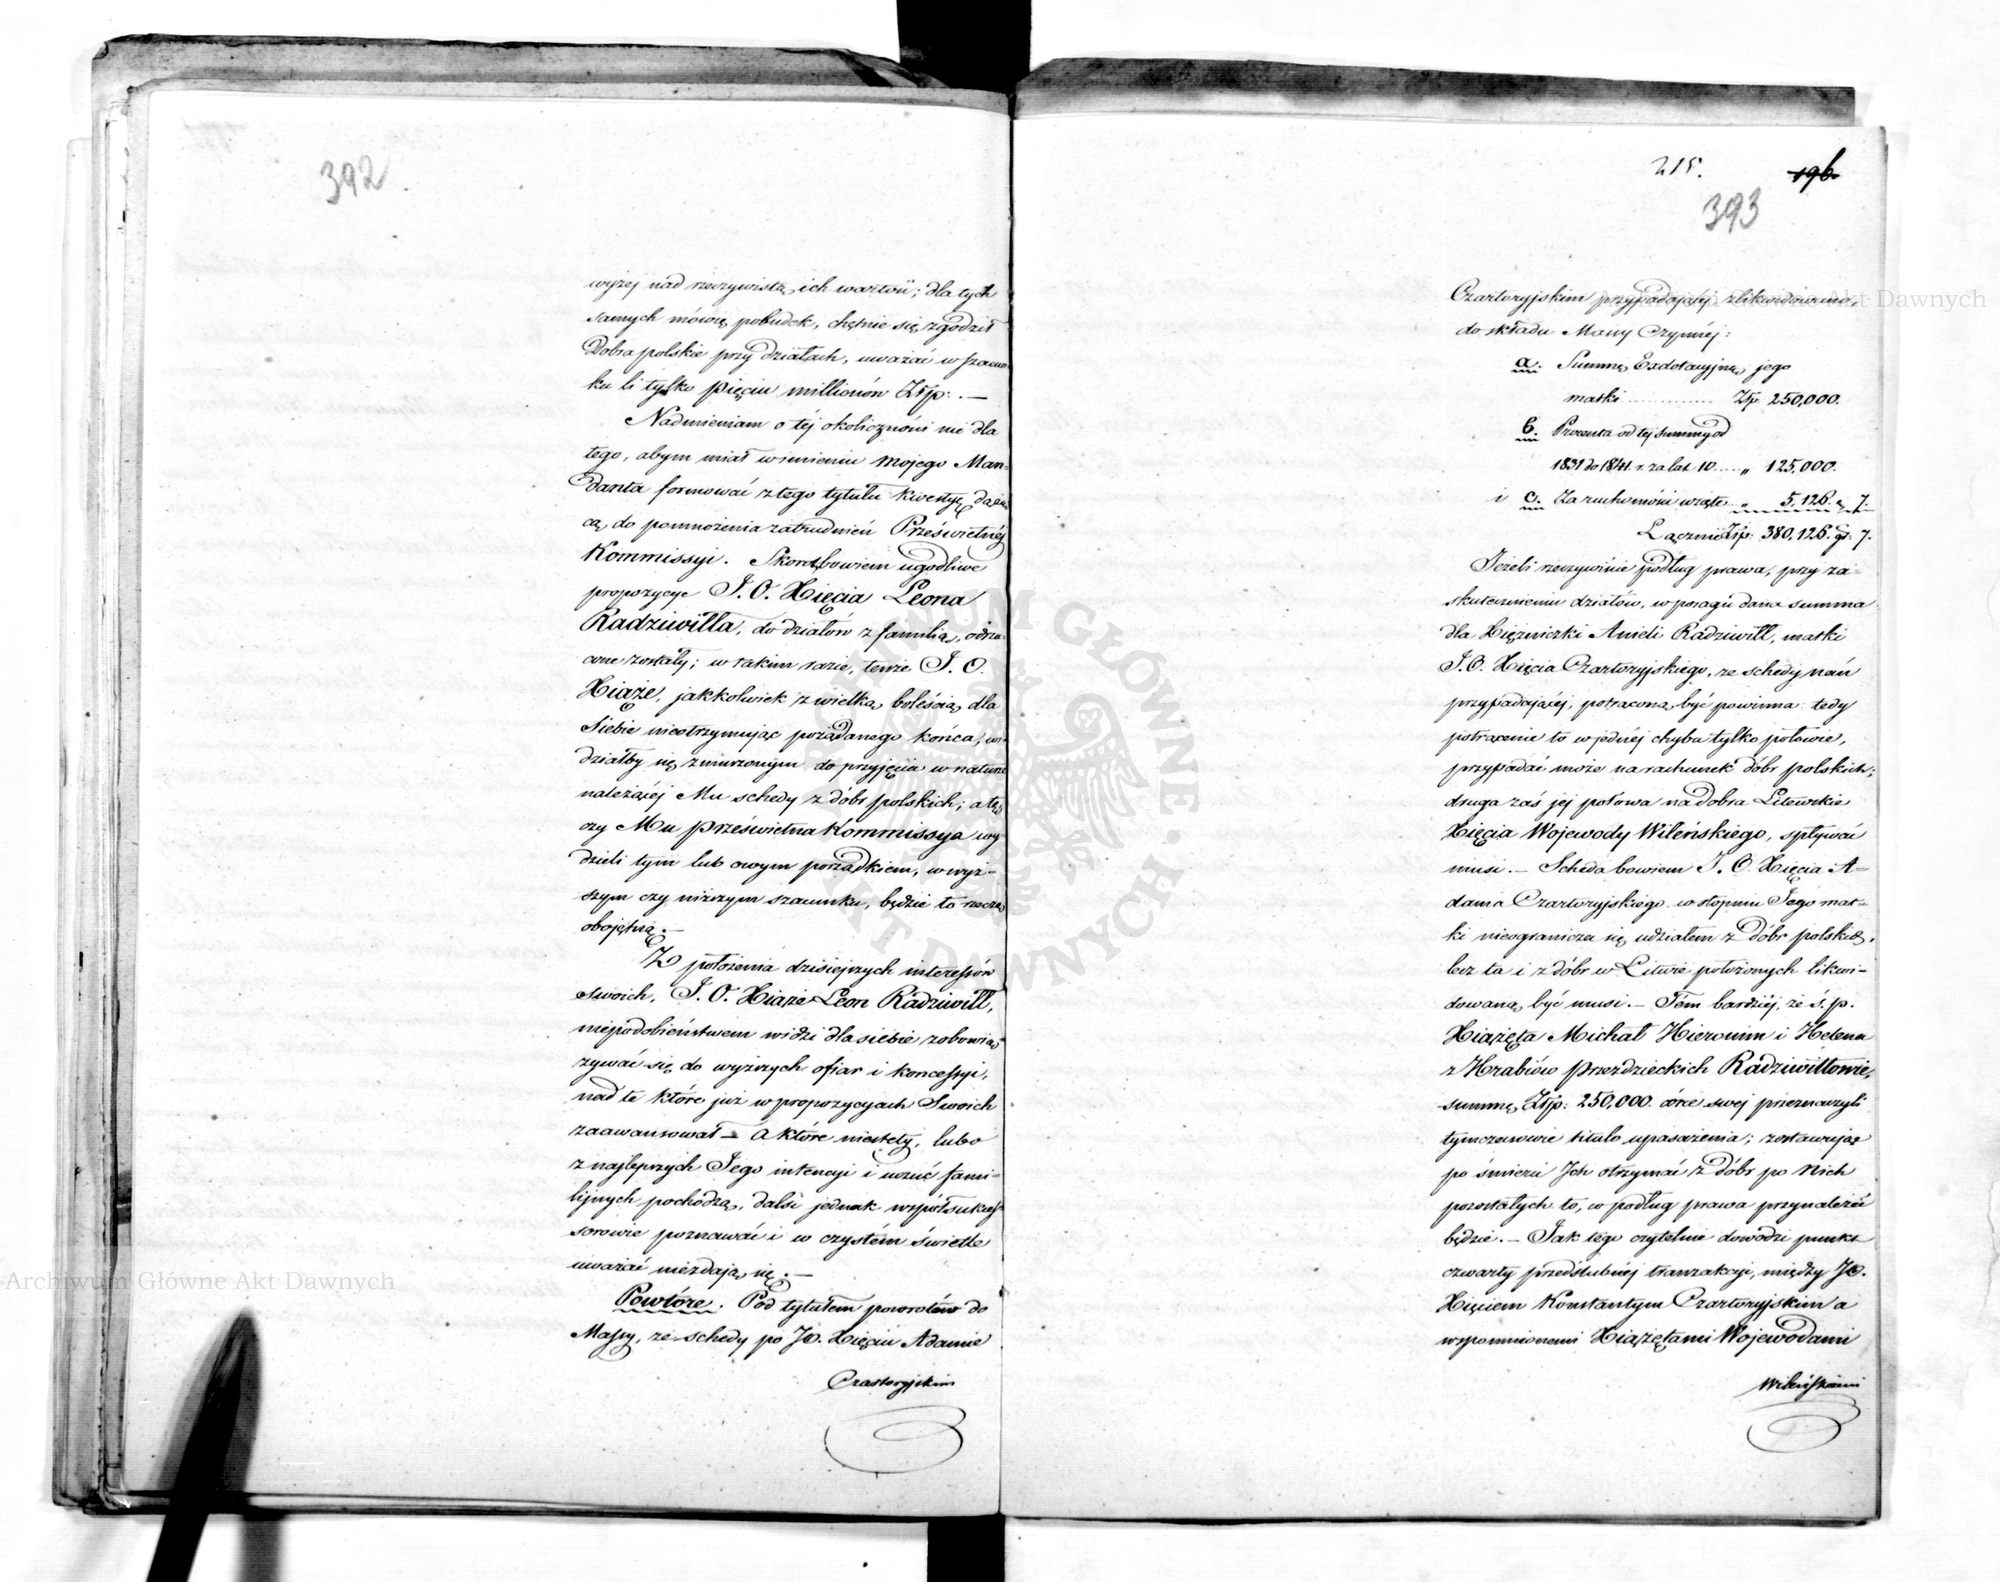 392
wyżej nad rzeczywistą ich wartość; dla tych
samych mówię pobudek, chętnie się zgodził
Dobra polskie przy działach, uważać w szacun-
ku li tylko pięciu millionów Złp. —
Nadmieniam o téj okoliczności nie dla
tego, abym miał w imieniu mojego Man-
danta formować z tego tytułu kwestyę dążą-
cą do pomnożenia zatrudnień Prześwietnéj
Kommissyi. Skoro bowiem ugodliwe
propozycye J. O. Xięcia Leona
Radziwiłła, do działów z familią, odrzu-
cone zostały; w takim razie, tenże J. O.
Xiąże, jakkolwiek z wielką boleścią dla
Siebie nieotrzymując pożądanego końca, wi-
działby się zmuszonym do przyjęcia w naturze
należącej Mu schedy z dóbr polskich; a tę
czy Mu prześwietna Kommissya wy-
dzieli tym lub owym porządkiem, w wyż-
szym czy niższym szacunku, będzie to rzeczą
obojętną. —
Z położenia dzisiejszych interessów
swoich, J. O. Xiąże Leon Radziwiłł,
niepodobieństwem widzi dla siebie zobowią-
zywać się do wyższych ofiar i koncessyi,
nad te które już w propozycyach Swoich
zaawansował — a które niestety, lubo
z najlepszych Jego intencyi i uczuć fami-
lijnych pochodzą, dalsi jednak współsukces-
sorowie poznawać i w czystém świetle
uważać niezdają się. —
Powtóre. Pod tytułem powrotów do
Massy, ze schedy po JO. Xięciu Adamie
Czartoryjskim
215.
196
393
Czartoryjskim przypadającej zlikwidowano,
do składu Massy Czynnéj:
a. Summę Exdotacyjną jego
matki ............ Złp. 250,000.
b. Procenta od tej summy od
1831 do 1841 r. za lat 10 ..... „ 125,000.
i c. Za ruchomości wzięte „ 5,126 g. 7.
Łącznie Złp: 380,126. gr. 7.
Jeżeli rzeczywiście podług prawa, przy za-
skutecznieniu działów, w posagu dana summa
dla Xiężniczki Anieli Radziwiłł, matki
J. O. Xięcia Czartoryjskiego, ze schedy nań
przypadającéj, potrąconą być powinna: tedy
potrącenie to w jednéj chyba tylko połowie,
przypadać może na rachunek dóbr polskich;
druga zaś jej połowa na dobra Litewskie
Xięcia Wojewody Wileńskiego, spływać
musi. — Scheda bowiem J. O. Xięcia A-
dama Czartoryjskiego w stopniu Jego mat-
ki nieogranicza się udziałem z dóbr polskich,
lecz ta i z dóbr w Litwie położonych likwi-
dowaną być musi. — Tém bardziéj, że ś. p.
Xiążęta Michał Hieronim i Helena
z Hrabiów Przezdzieckich Radziwiłłowie,
summę Złp: 250,000. córce swej przeznaczyli
tymczasowie titulo uposażenia; zostawując
po śmierci Ich otrzymać z dóbr po Nich
pozostałych to, co podług prawa przynależeć
będzie. — Jak tego czytelnie dowodzi punkt
czwarty przedślubnéj tranzakcyi, między JO.
Xięciem Konstantym Czartoryjskim a
wspomnionemi Xiążętami Wojewodami
Wileńskiemi
Archiwum Główne Akt Dawnych
Archiwum Główne Akt Dawnych
ARCHIWUM GŁÓWNE AKT DAWNYCH